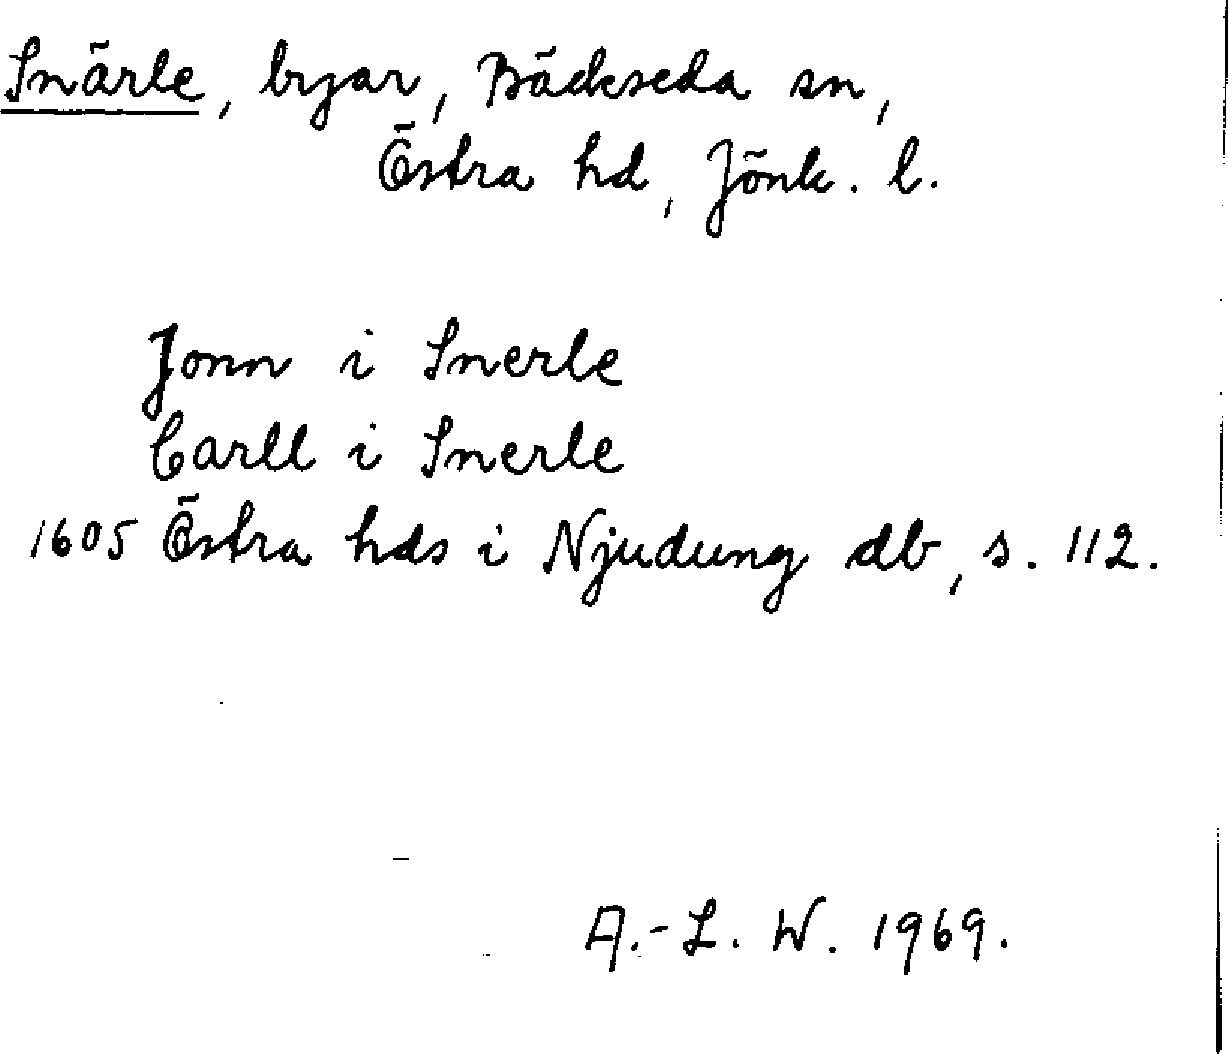 Snärle, byar, Bäckseda sn,
Östra hd, Jönk. l.
Jonn i Snerle
Carll i Snerle
1605 Östra hds i Njudung db, s. 112.
A.-L. W. 1969.